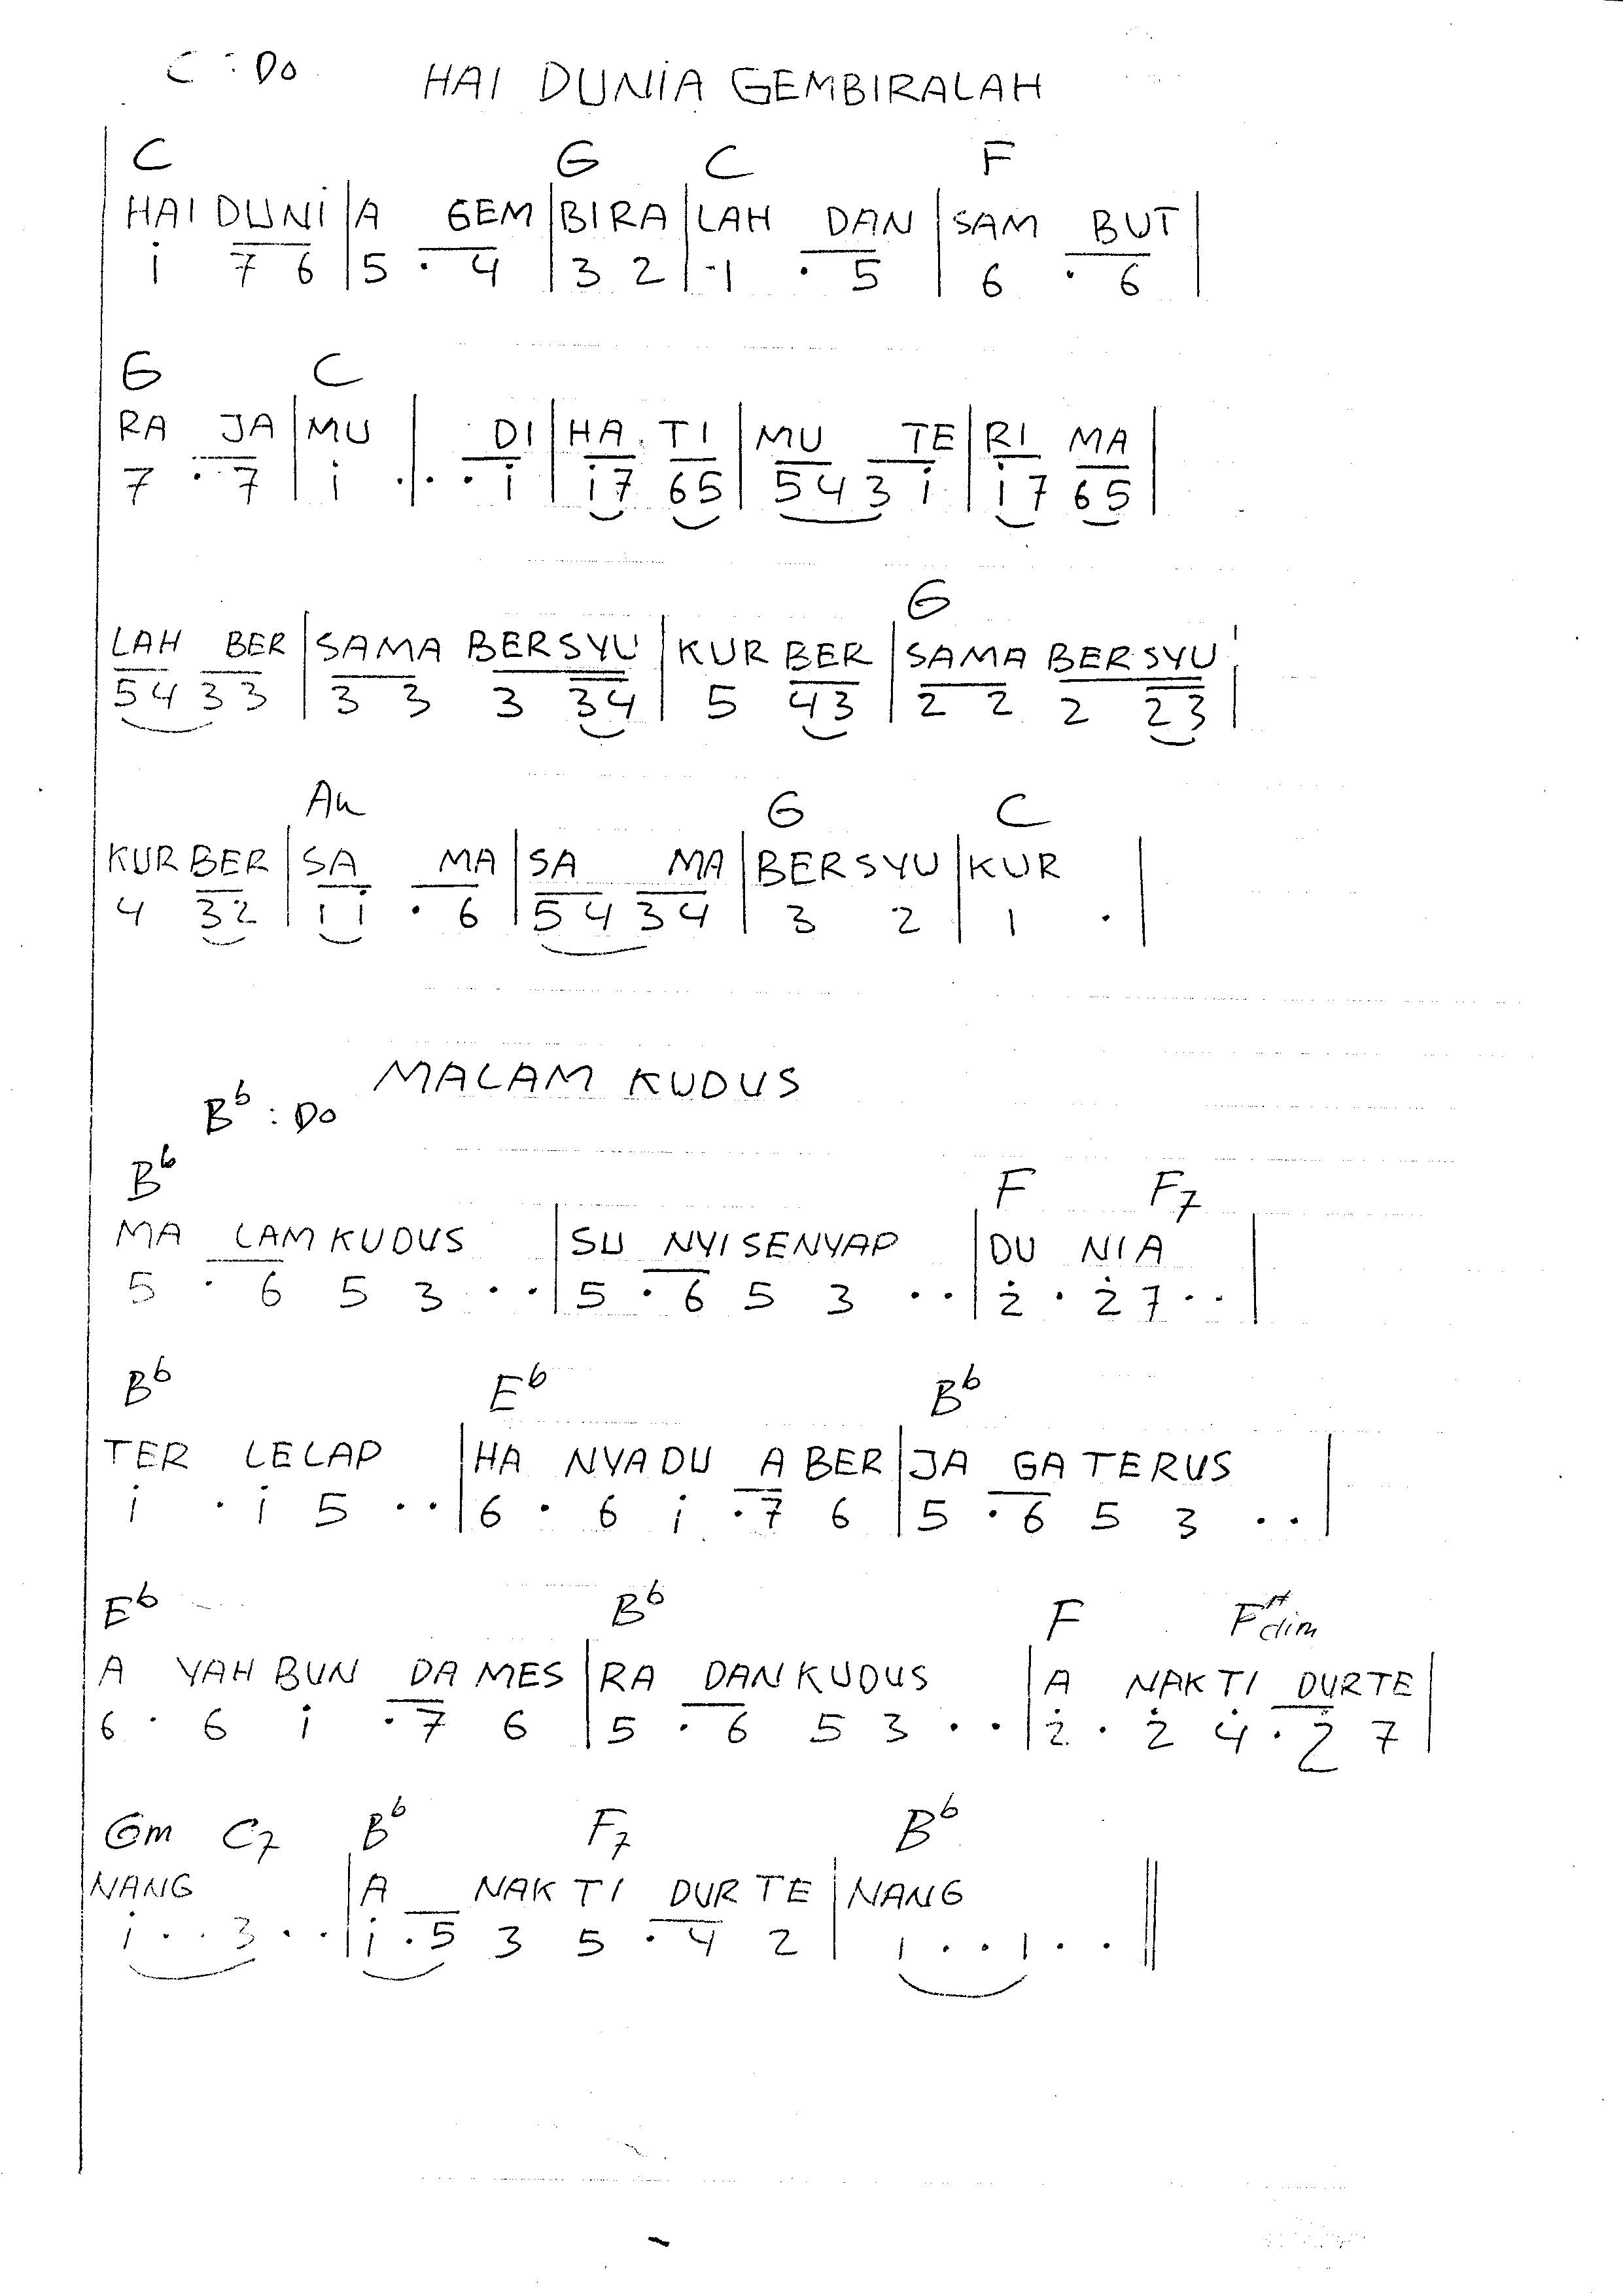 C : Do HAI DUNIA GEMBIRALAH
C G C F
HAI DUNI | A GEM | BIRA | LAH DAN | SAM BUT |
i 7 6 | 5 . 4 | 3 2 | 1 . 5 | 6 . 6 |
G C
RA JA | MU | DI | HA TI | MU TE | RI MA |
7 . 7 | i . | . . i | i 7 6 5 | 5 4 3 i | i 7 6 5 |
G
LAH BER | SAMA BERSYU | KUR BER | SAMA BERSYU |
5 4 3 3 | 3 3 3 3 4 | 5 4 3 | 2 2 2 2 3 |
G C
KUR BER | SA MA | SA MA | BERSYU | KUR |
4 3 2 | 1 i . 6 | 5 4 3 4 | 3 2 | 1 . |
MALAM KUDUS
Bb : Do
Bb F F7
MA LAM KUDUS | SU NYI SENYAP | DU NIA |
5 . 6 5 3 . . | 5 . 6 5 3 . . | 2̇ . 2̇ 7 . . |
Bb Eb Bb
TER LELAP | HA NYA DU A BER | JA GA TERUS |
i . i 5 . . | 6 . 6 i . 7 6 | 5 . 6 5 3 . . |
Eb Bb F F#dim
A YAH BUN DA MES | RA DAN KUDUS | A NAK TI DUR TE |
6 . 6 i . 7 6 | 5 . 6 5 3 . . | 2̇ . 2̇ 4̇ . 2̇ 7 |
Gm C7 Bb F7 Bb
NANG | A NAK TI DUR TE | NANG ||
i . . 3 . . | i . 5 3 5 . 4 2 | 1 . . 1 . . ||